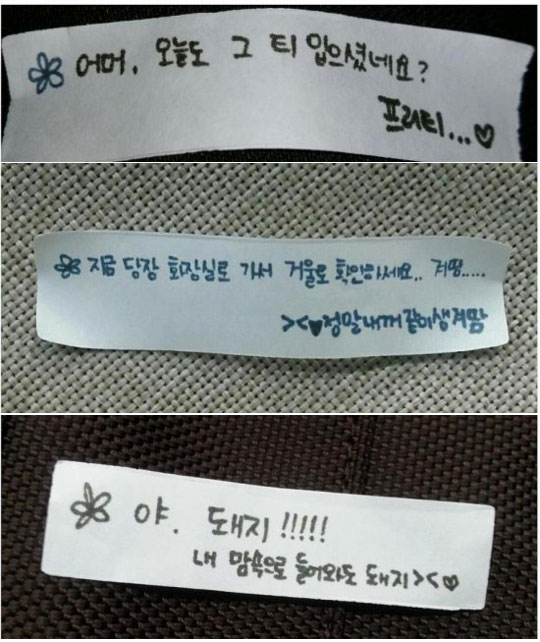 어머, 오늘도 그 티 입으셨네요?
프리티...♡
지금 당장 화장실로 가서 거울로 확인하세요.. 겨땀.....
><♥정말내꺼같이생겨땀
야. 돼지!!!!!
내 맘속으로 들어와도 돼지><♡